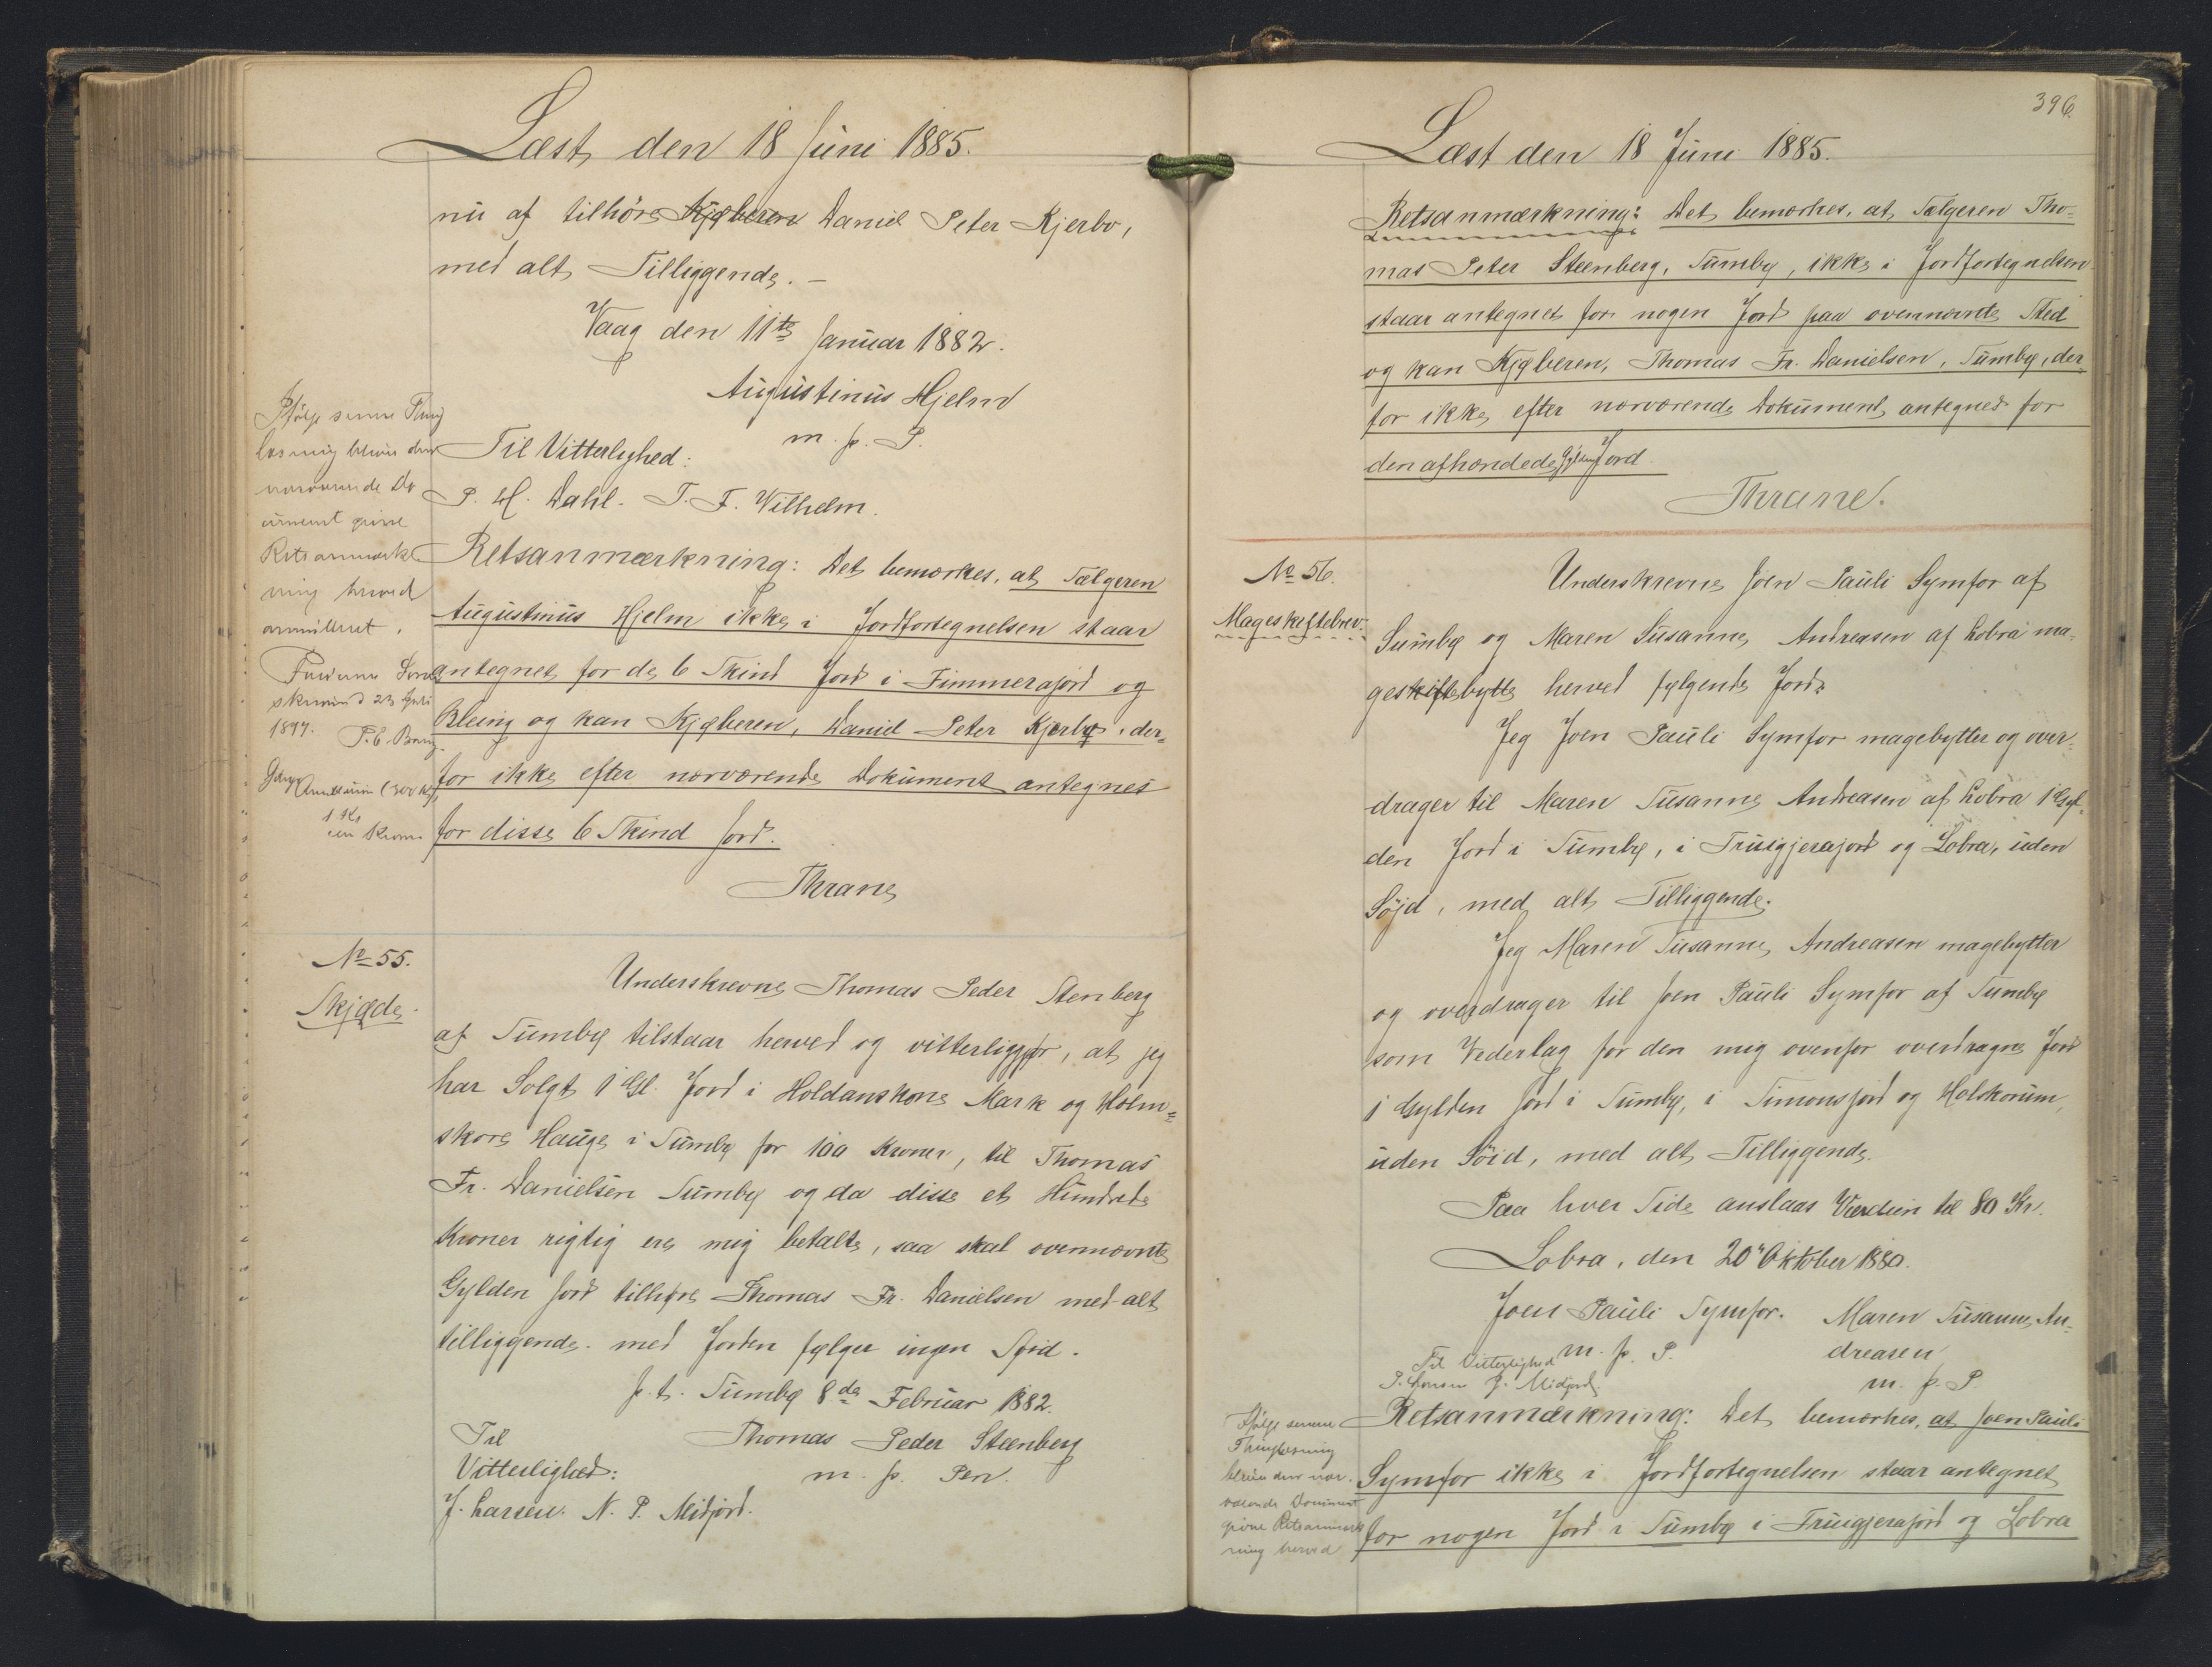 Læst den 18 Juni 1885.
nu af tilhøre Kjøberen Daniel Peter Kjerbo,
med alt Tilliggende. –
Vaag den 11te Januar 1882.
Augustinus Hjelm
m. p. P.
Til Vitterlighed:
P. H. Dahl. T. F. Wilhelm.
Retsanmærkning: Det bemærkes, at Sælgeren
Augustinus Hjelm ikke i Jordfortegnelsen staar
antegnet for de 6 Skind Jord i Fimmerajord og
Bleing og kan Kjøberen, Daniel Peter Kjerbo, der=
for ikke efter nærværende Dokument antegnes
for disse 6 Skind Jord.
Thrane
Ifølge senere Thing
læsning bliver den
nærværende Do
cument givne
Retsanmærk
ning herved
annulleret.
skriveri d 23 Juli
1897.
1 Kr
en Krone
No 55.
Skjøde.
Underskrevne Thomas Peder Stenberg
af Sumbø tilstaar herved og vitterliggjør, at jeg
har Solgt 1 Gl. Jord i Holdanskore Mark og Holm=
skore Hauge i Sumbø for 100 Kroner, til Thomas
Fr. Danielsen Sumbø og da disse et Hundrede
Kroner rigtig ere mig betalte, saa skal ovennævnte
Gylden Jord tilhøre Thomas Fr. Danielsen med alt
tilliggende. med Jorden følger ingen Søid.
p.t. Sumbø 8de Februar 1882.
Til
Vitterlighed:
Thomas Peder Steenberg
m. p. Pen.
J. Larsen. N. P. Midjord.
396.
Læst den 18 Juni 1885.
Retsanmærkning: Det bemærkes, at Sælgeren Tho=
mas Peter Steenberg, Sumbø, ikke i Jordfortegnelsen
staar antegnet for nogen Jord paa ovennævnte Sted
og kan Kjøberen, Thomas Fr. Danielsen, Sumbø, der
for ikke efter nærværende Dokument antegnes for
den afhændede Gylden Jord.
Thrane.
No 56.
Mageskiftebrev.
Underskrevne Joen Pauli Symfor af
Sumbø og Maren Susanne Andreasen af Lobra ma=
geskiftebytte herved følgende Jord:
Jeg Joen Pauli Symfor magebytter og over=
drager til Maren Susanne Andreasen af Lobra 1 Gyl=
den Jord i Sumbø, i Truigjerajord og Lobra, uden
Søjd, med alt Tilliggende.
Jeg Maren Susanne Andreasen magebytter
og overdrager til Joen Pauli Symfor af Sumbø
som Vederlag for den mig ovenfor overdragne Jord
1 Gylden Jord i Sumbø, i Simonsjord og Holskorum,
uden Søid, med alt Tilliggende.
Paa hver Side anslaas Værdien til 80 Kr.
Lobra, den 20' Oktober 1880.
Joen Pauli Symfor. Maren Susanne An=
dreasen
m. p. P.
m. p. P.
Til Vitterlighed
Midjord
Retsanmærkning: Det bemærkes, at Joen Pauli
Symfor ikke i Jordfortegnelsen staar antegnet
for nogen Jord i Sumbø i Truigjerajord og Lobra
Ifølge senere
Thinglæsning
bliver den nær=
værende Document
givne Retsanmærk
ning herved